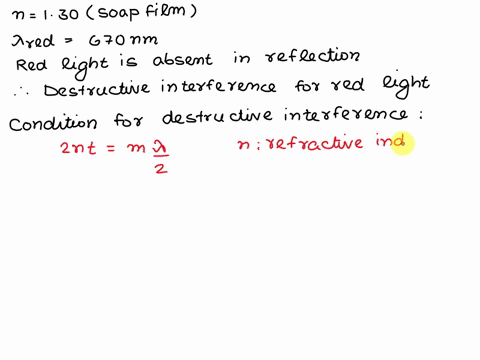 n = 1.30 (soap film)
λred = 670 nm
Red light is absent in reflection
∴ Destructive interference for red light
Condition for destructive interference :
2nt = m λ/2 n : refractive ind